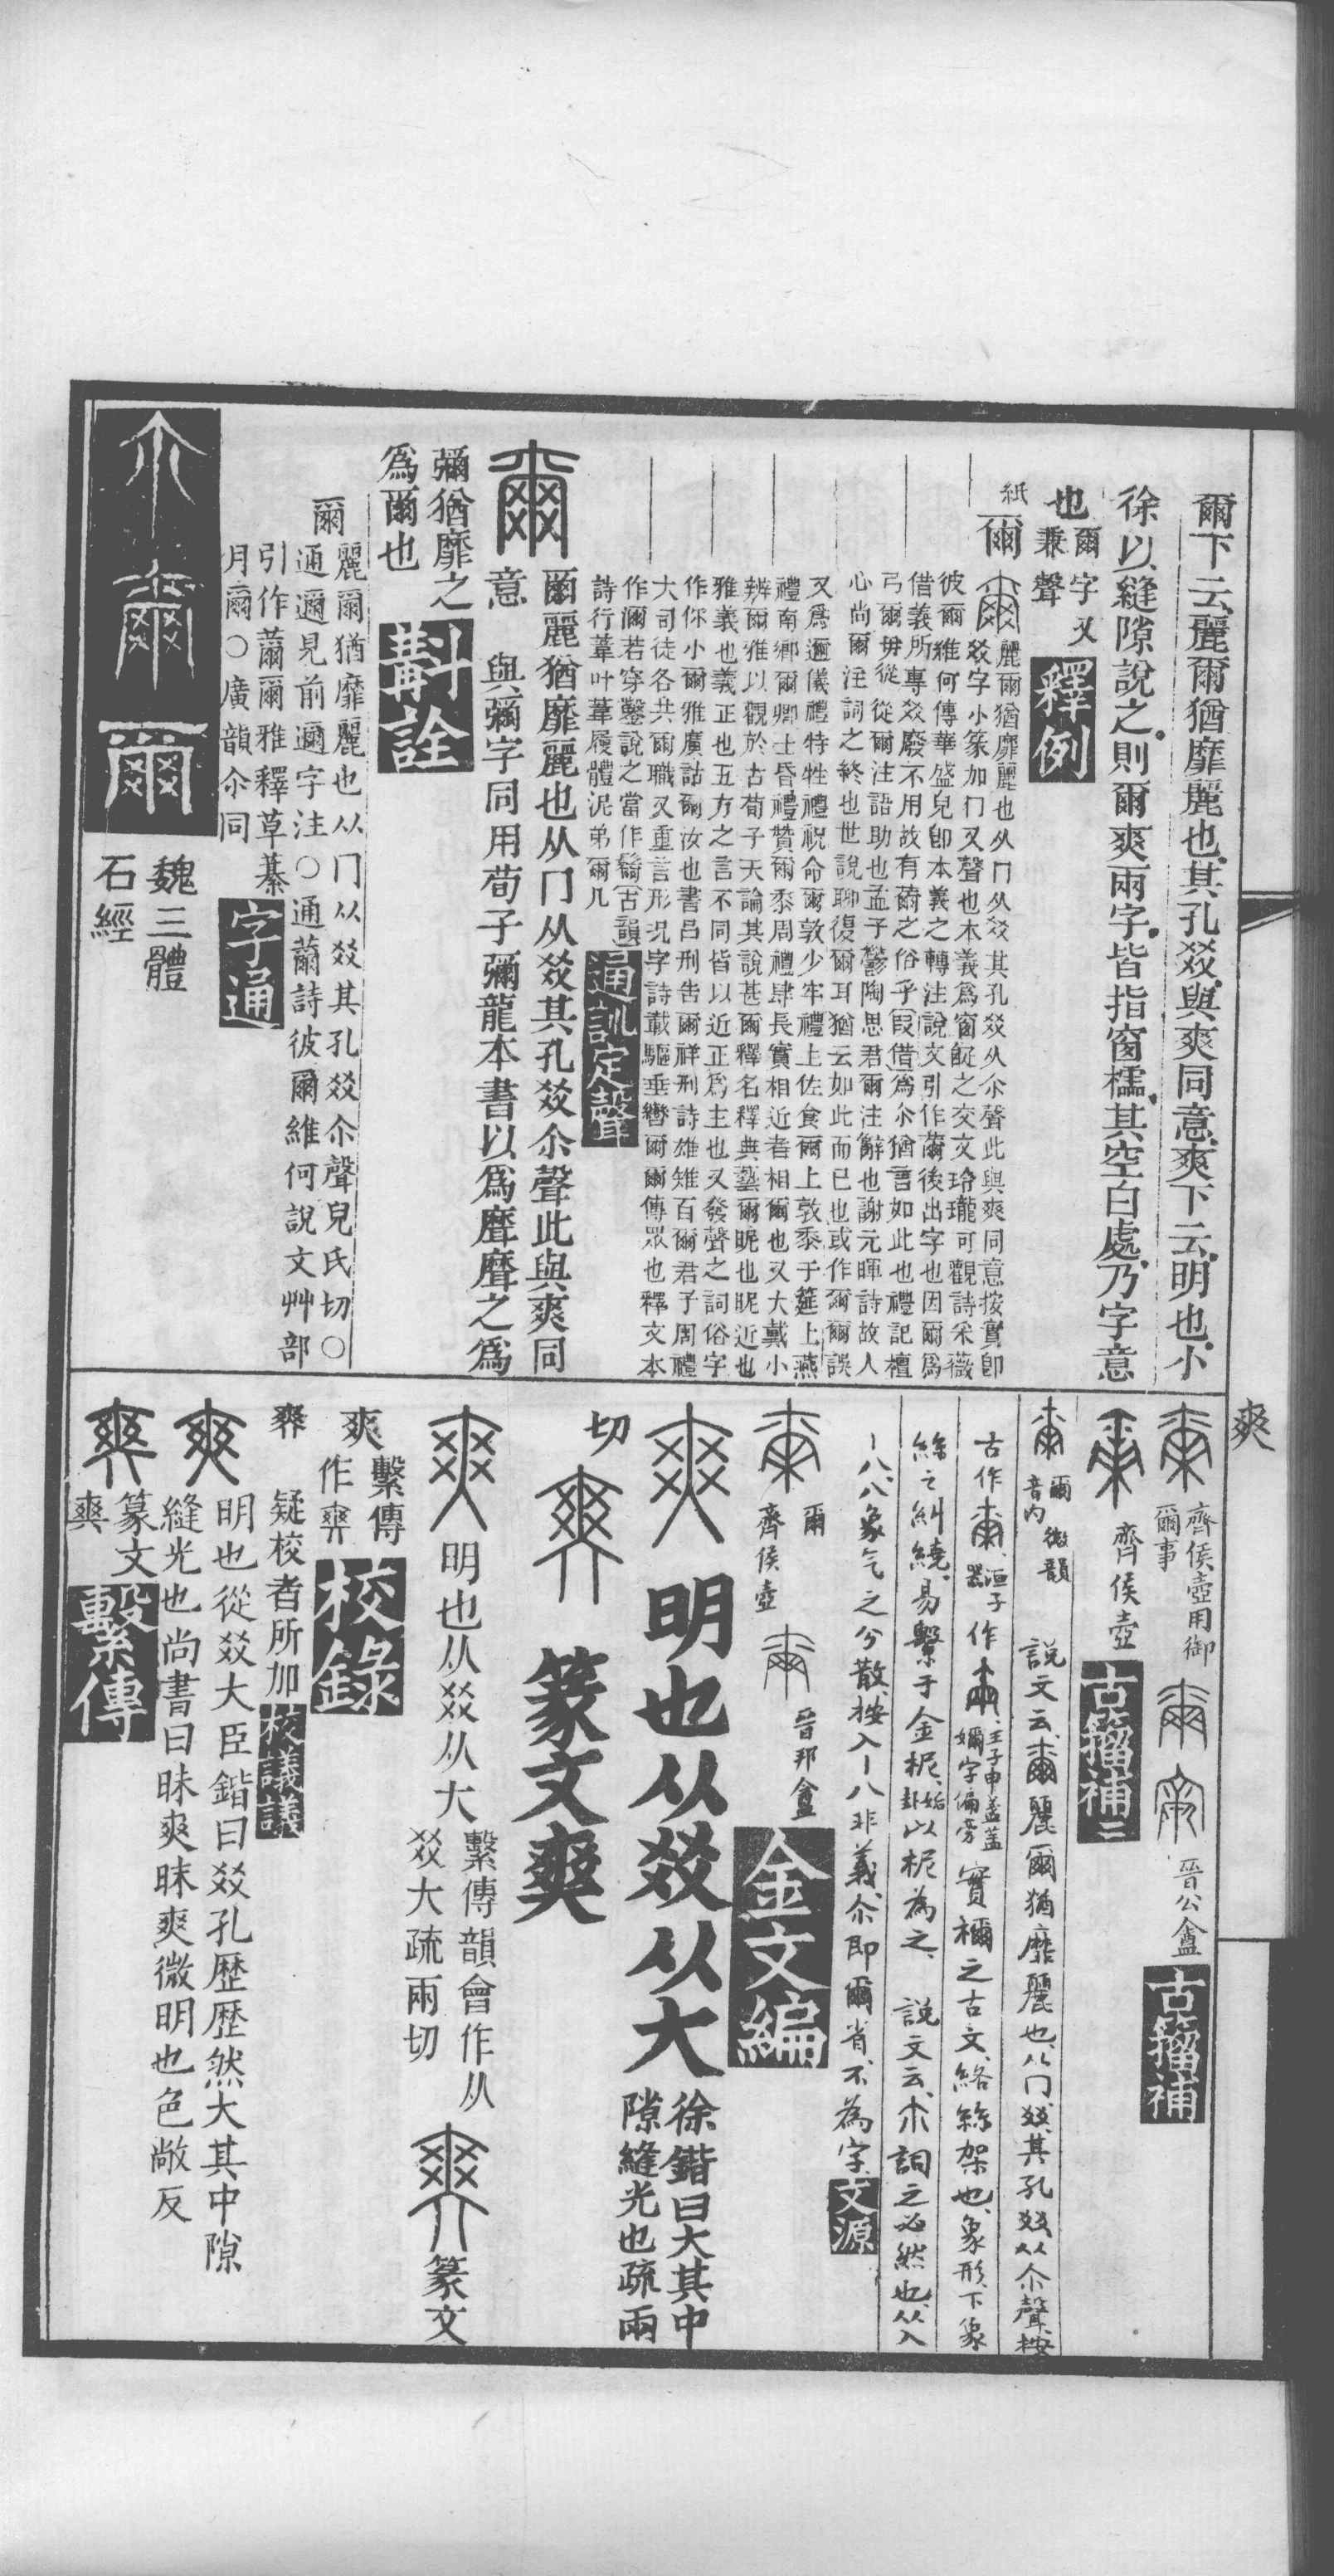 爾下云麗爾猶靡麗也其孔㸚與爽同意爽下云明也小
徐以縫隙說之則爾爽兩字皆指窗櫺其空白處乃字意
也
爾字㸚
兼聲
釋例
紙
爾
麗爾猶靡麗也从冂从㸚其孔㸚从尒聲此與爽同意按實卽
㸚字小篆加冂又聲也本義爲窗 之交文玲瓏可觀詩采薇
彼爾維何傳華盛皃卽本義之轉注說文引作薾後出字也因爾爲
借義所專㸚廢不用故有薾之俗乎假借爲尒猶言如此也禮記檀
弓爾毋從從爾注語助也孟子鬱陶思君爾注辭也謝元暉詩故人
心尚爾注詞之終也世說聊復爾耳猶云如此而已也或作爾爾誤
又爲邇儀禮特牲禮祝命爾敦少牢禮上佐食爾上敦黍于筵上燕
禮南鄉爾卿士昏禮贊爾黍周禮肆長實相近者相爾也又大戴小
辨爾雅以觀於古荀子天論其說甚爾釋名釋典藝爾昵也昵近也
雅義也義正也五方之言不同皆以近正爲主也又發聲之詞俗字
作你小爾雅廣詁爾汝也書呂刑告爾祥刑詩雄雉百爾君子周禮
大司徒各共爾職又重言形況字詩載驅垂轡爾爾傳眾也釋文本
作濔若穿鑿說之當作 古韻
詩行葦叶葦履體泥弟爾几
通訓定聲
爾麗猶靡麗也从冂从㸚其孔㸚尒聲此與爽同
意 與彌字同用荀子彌龍本書以爲㸏㸏之爲
彌猶靡之
爲爾也
斠詮
爾
麗爾猶靡麗也从冂从㸚其孔㸚尒聲兒氏切〇
通邇見前邇字注〇通薾詩彼爾維何說文艸部
引作薾爾雅釋草綦
月爾〇廣韻尒同
字通
魏三體
石經
爽
齊侯壺用御
爾事
晉公盦
古籀補
齊侯壺
古籀補二
爾
音內
微韻
說文云爾麗爾猶靡麗也从冂㸚其孔㸚从尒聲按
古作
洹子
器
作
王子申盞蓋
嬭字偏旁
實檷之古文絡絲架也象形下象
絲之糾繞易繫于金柅姤卦以柅為之 說文云尒詞之必然也从入
丨八八象气之分散按入丨八非義尒即爾省不為字
文源
爾
齊侯壺
晉邦盦
金文編
明也从㸚从大
徐鍇曰大其中
隙縫光也疏兩
切
篆文爽
明也从㸚从大
繫傳韻會作从
㸚大疏兩切
篆文
爽
繫傳
作𤕤
校錄
𤕤
疑校者所加
校議議
明也從㸚大臣鍇曰㸚孔歷歷然大其中隙
縫光也尚書曰昧爽昧爽微明也色敞反
篆文
爽
繫傳